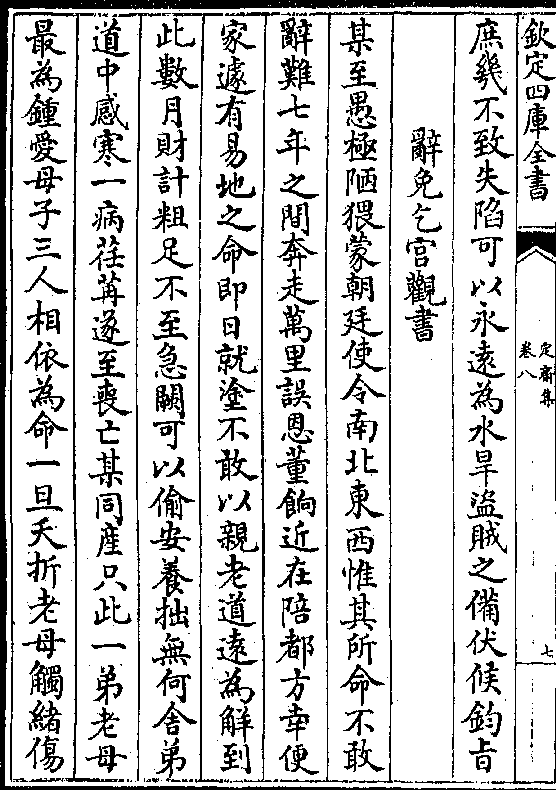 欽定四庫全書
定齋集
卷八
七
庶幾不致失陷可以永遠為水旱盜賊之備伏候鈞旨
辭免乞宮觀書
某至愚極陋猥蒙朝廷使令南北東西惟其所命不敢
辭難七年之間奔走萬里誤恩董餉近在陪都方幸便
家遽有易地之命即日就塗不敢以親老道遠為解到
此數月財計粗足不至急闕可以偷安養拙無何舍弟
道中感寒一病荏苒遂至喪亡某同產只此一弟老母
最為鍾愛母子三人相依為命一旦夭折老母觸緒傷